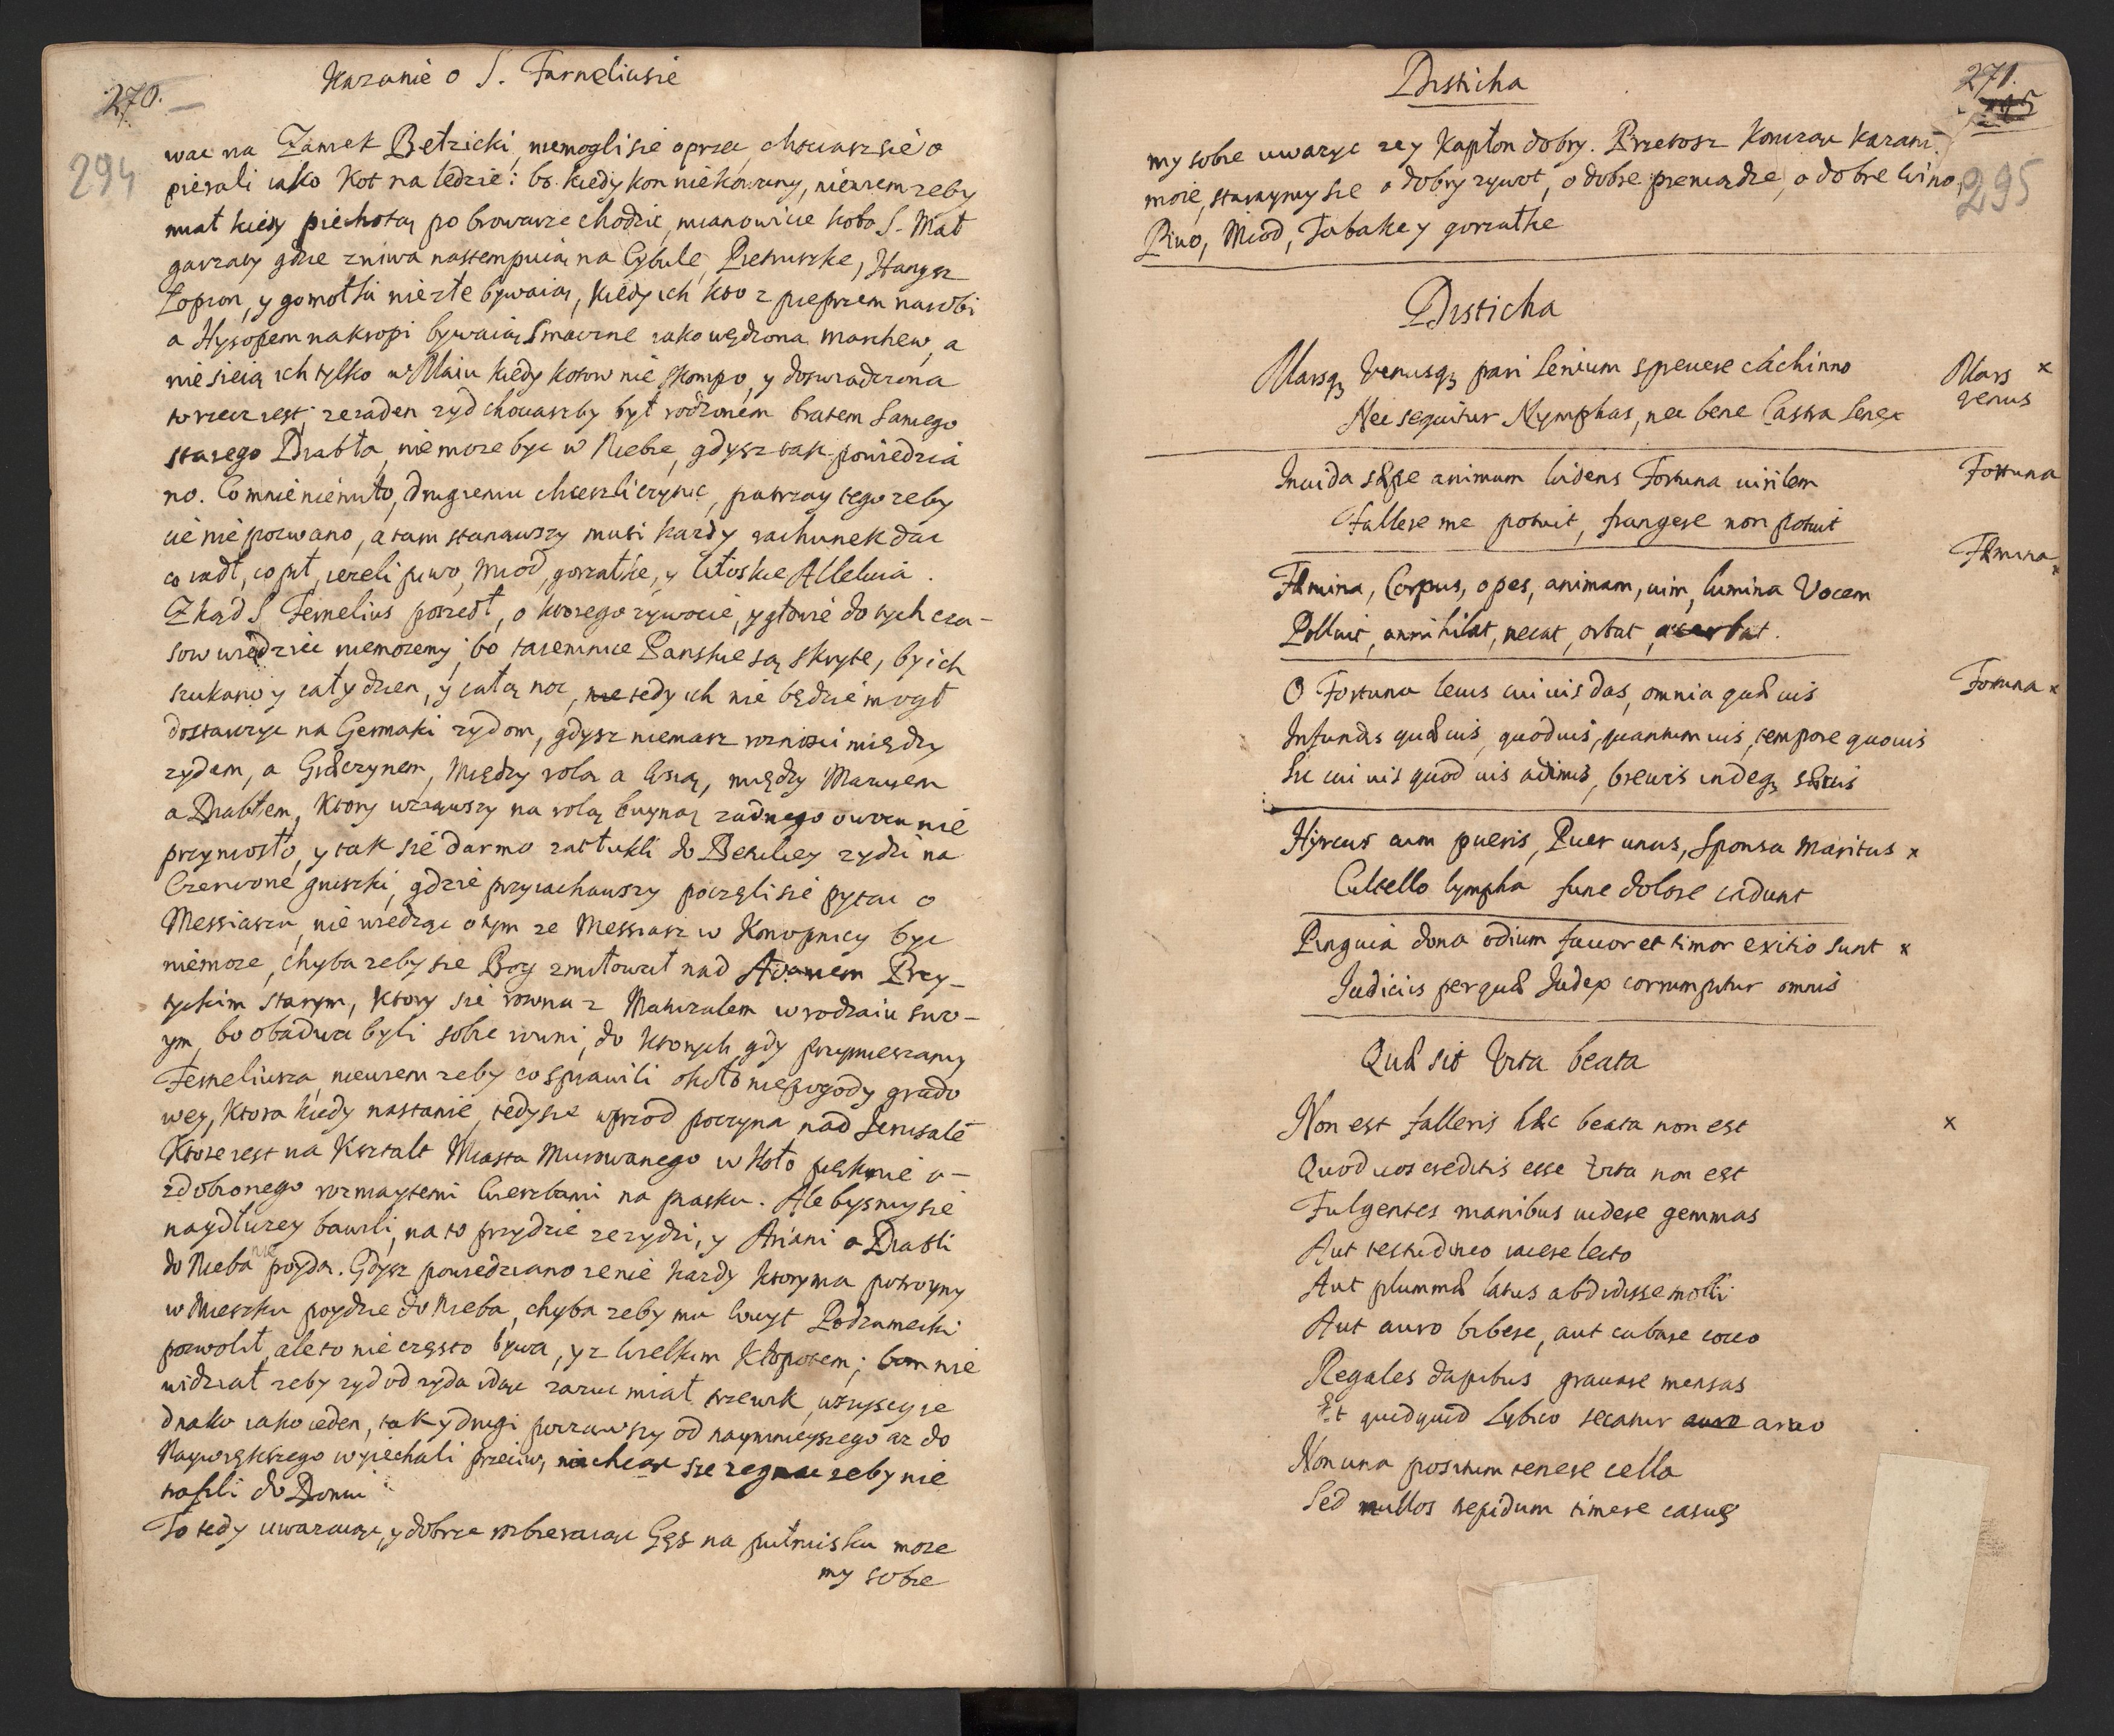 270.
Kazanie o S. Farneliusie
294
wac na Zamek Bełzicki, niemogli sie oprzec, chociasz sie o
pierali iako Kot na ledzie: bo kiedy kon niekowany, niewiem zeby
miał kiedy piechotą po browarze chodzic, mianowicie koło S. Mał
garzaty gdzie zniwa nastempuią na Cybule, Pietruszke, Hanysz
Łopion, y gomołki niezłe bywaią, kiedy ich kto z pieprzem narobi
a Hysopem nakropi bywaią smaczne iako wędzona marchew, a
nie sieią ich tylko w Maiu kiedy kotow nie skompo, y doswiadczona
to rzecz iest, ze zaden zyd chociaszby był rodzonem bratem samego
starego Diabła, niemoze byc w Niebie, gdysz tak powiedzia
no. Co mnie niemiło, drugiemu chceszli czynic, patrzay tego zeby
cie nie pozwano, a tam stanąwszy musi kazdy rachunek dac
co iadł, co pił, iezeli piwo, miod, gorzałke, y włoskie Alleluia.
Zkąd S. Fernelius poszedł, o ktorego zywocie, y głowie do tych cza-
sow wiedziec niemozemy, bo taiemnice Panskie są skryte, by ich
szukano y cały dzien, y całą noc, tedy ich nie będzie mogł
dostarczyc na Germaki zydom, gdysz niemasz roznosci między
zydem, a Greczynem, między rolą a Wsią, między Marcusem
a Diabłem, Ktory wziąwszy na rolą buyną zadnego owocu nie
przyniosło, y tak sie darmo zatłukli do Bezuley zydzi na
Czerwone gruszki, gdzie przyiachawszy poczęli sie pytac o
Messiaszu, nie wiedząc o tym ze Messiasz w Konopnicy byc
niemoze, chyba zeby sie Bog zmiłował nad Adamem Brey-
tyckim starym, Ktory sie rowna z Matuzalem w rodzaiu swo-
ym, bo obadwa byli sobie rowni, do ktorych gdy przymieszamy
Ferneliusza, niewiem zeby co sprawili około niepogody grado
wey, Ktora kiedy nastanie, tedy sie wprzod poczyna nad Jerusalē
Ktore iest na Kształt Miasta Murowanego w koło pięknie o-
zdobionego rozmaytemi Liczbami na piasku. Ale bysmy sie
naydłuzey bawili, na to przydzie ze zydzi, y Ariani a Diabli
do Nieba nie poydą. Gdysz powiedziano ze nie kazdy ktory ma potroyny
w Mieszku poydzie do Nieba, chyba zeby mu Woyt Podzamecki
pozwolił, ale to nie często bywa, y z wielkim kłopotem; bom nie
widział zeby zyd od zyda idąc zaraz miał trzewik, wszyscy ie
dnako iako ieden, tak y drugi począwszy od naymnieyszego az do
Naywiększego wyiechali przeciw, niechcąc sie zegnac zeby nie
trafili do Domu
To tedy uwazaiąc, y dobrze rozbieraiąc Gęs na pułmisku moze
my sobie
Disticha
271.
295
my sobie uwazyc ze y Kapłon dobry. Przetosz Koncząc kazani.
moie, staraymy sie o dobry zywot, o dobre pieniądze, o dobre wino,
Piwo, Miod, Tabake y gorzałke
Disticha
Marsqꝫ Venusqꝫ pari senium spreuere cachinno
Mars x
Venus
Nec sequitur Nymphas, nec bene Castra senex
Inuida sæpe animum ludens Fortuna uirilem
Fortuna
Fallere me potuit, frangere non potuit
Fæmina x
Fæmina, Corpus, opes, animam, uim, lumina Vocem
Polluit, annihilat, necat, orbat, acerbat.
O Fortuna leuis cui uis das, omnia quæ uis
Fortuna x
Infundis quæuis, quoduis, quantum uis, tempore quouis
Sic cui uis quod uis adimis, breuis indeqꝫ
Hyrcus cum pueris, Puer unus, Sponsa maritus x
Cultello lympha fune dolore cadunt
Pinguia dona odium fauor et timor exitio sunt x
Iudiciis per quæ Iudex corrumpitur omnis
Quæ sit Vita beata
Non est falleris hæc beata non est
x
Quod uos creditis esse Vita non est
Fulgentes manibus uidere gemmas
Aut testudineo iacere lecto
Aut plummæ latus abdidisse molli
Aut auro bibere, aut cubare cocco
Regales dapibus grauare mensas
Et quidquid Lybico secatur aruo
Non una positum tenere cella
Sed nullos trepidum timere casus